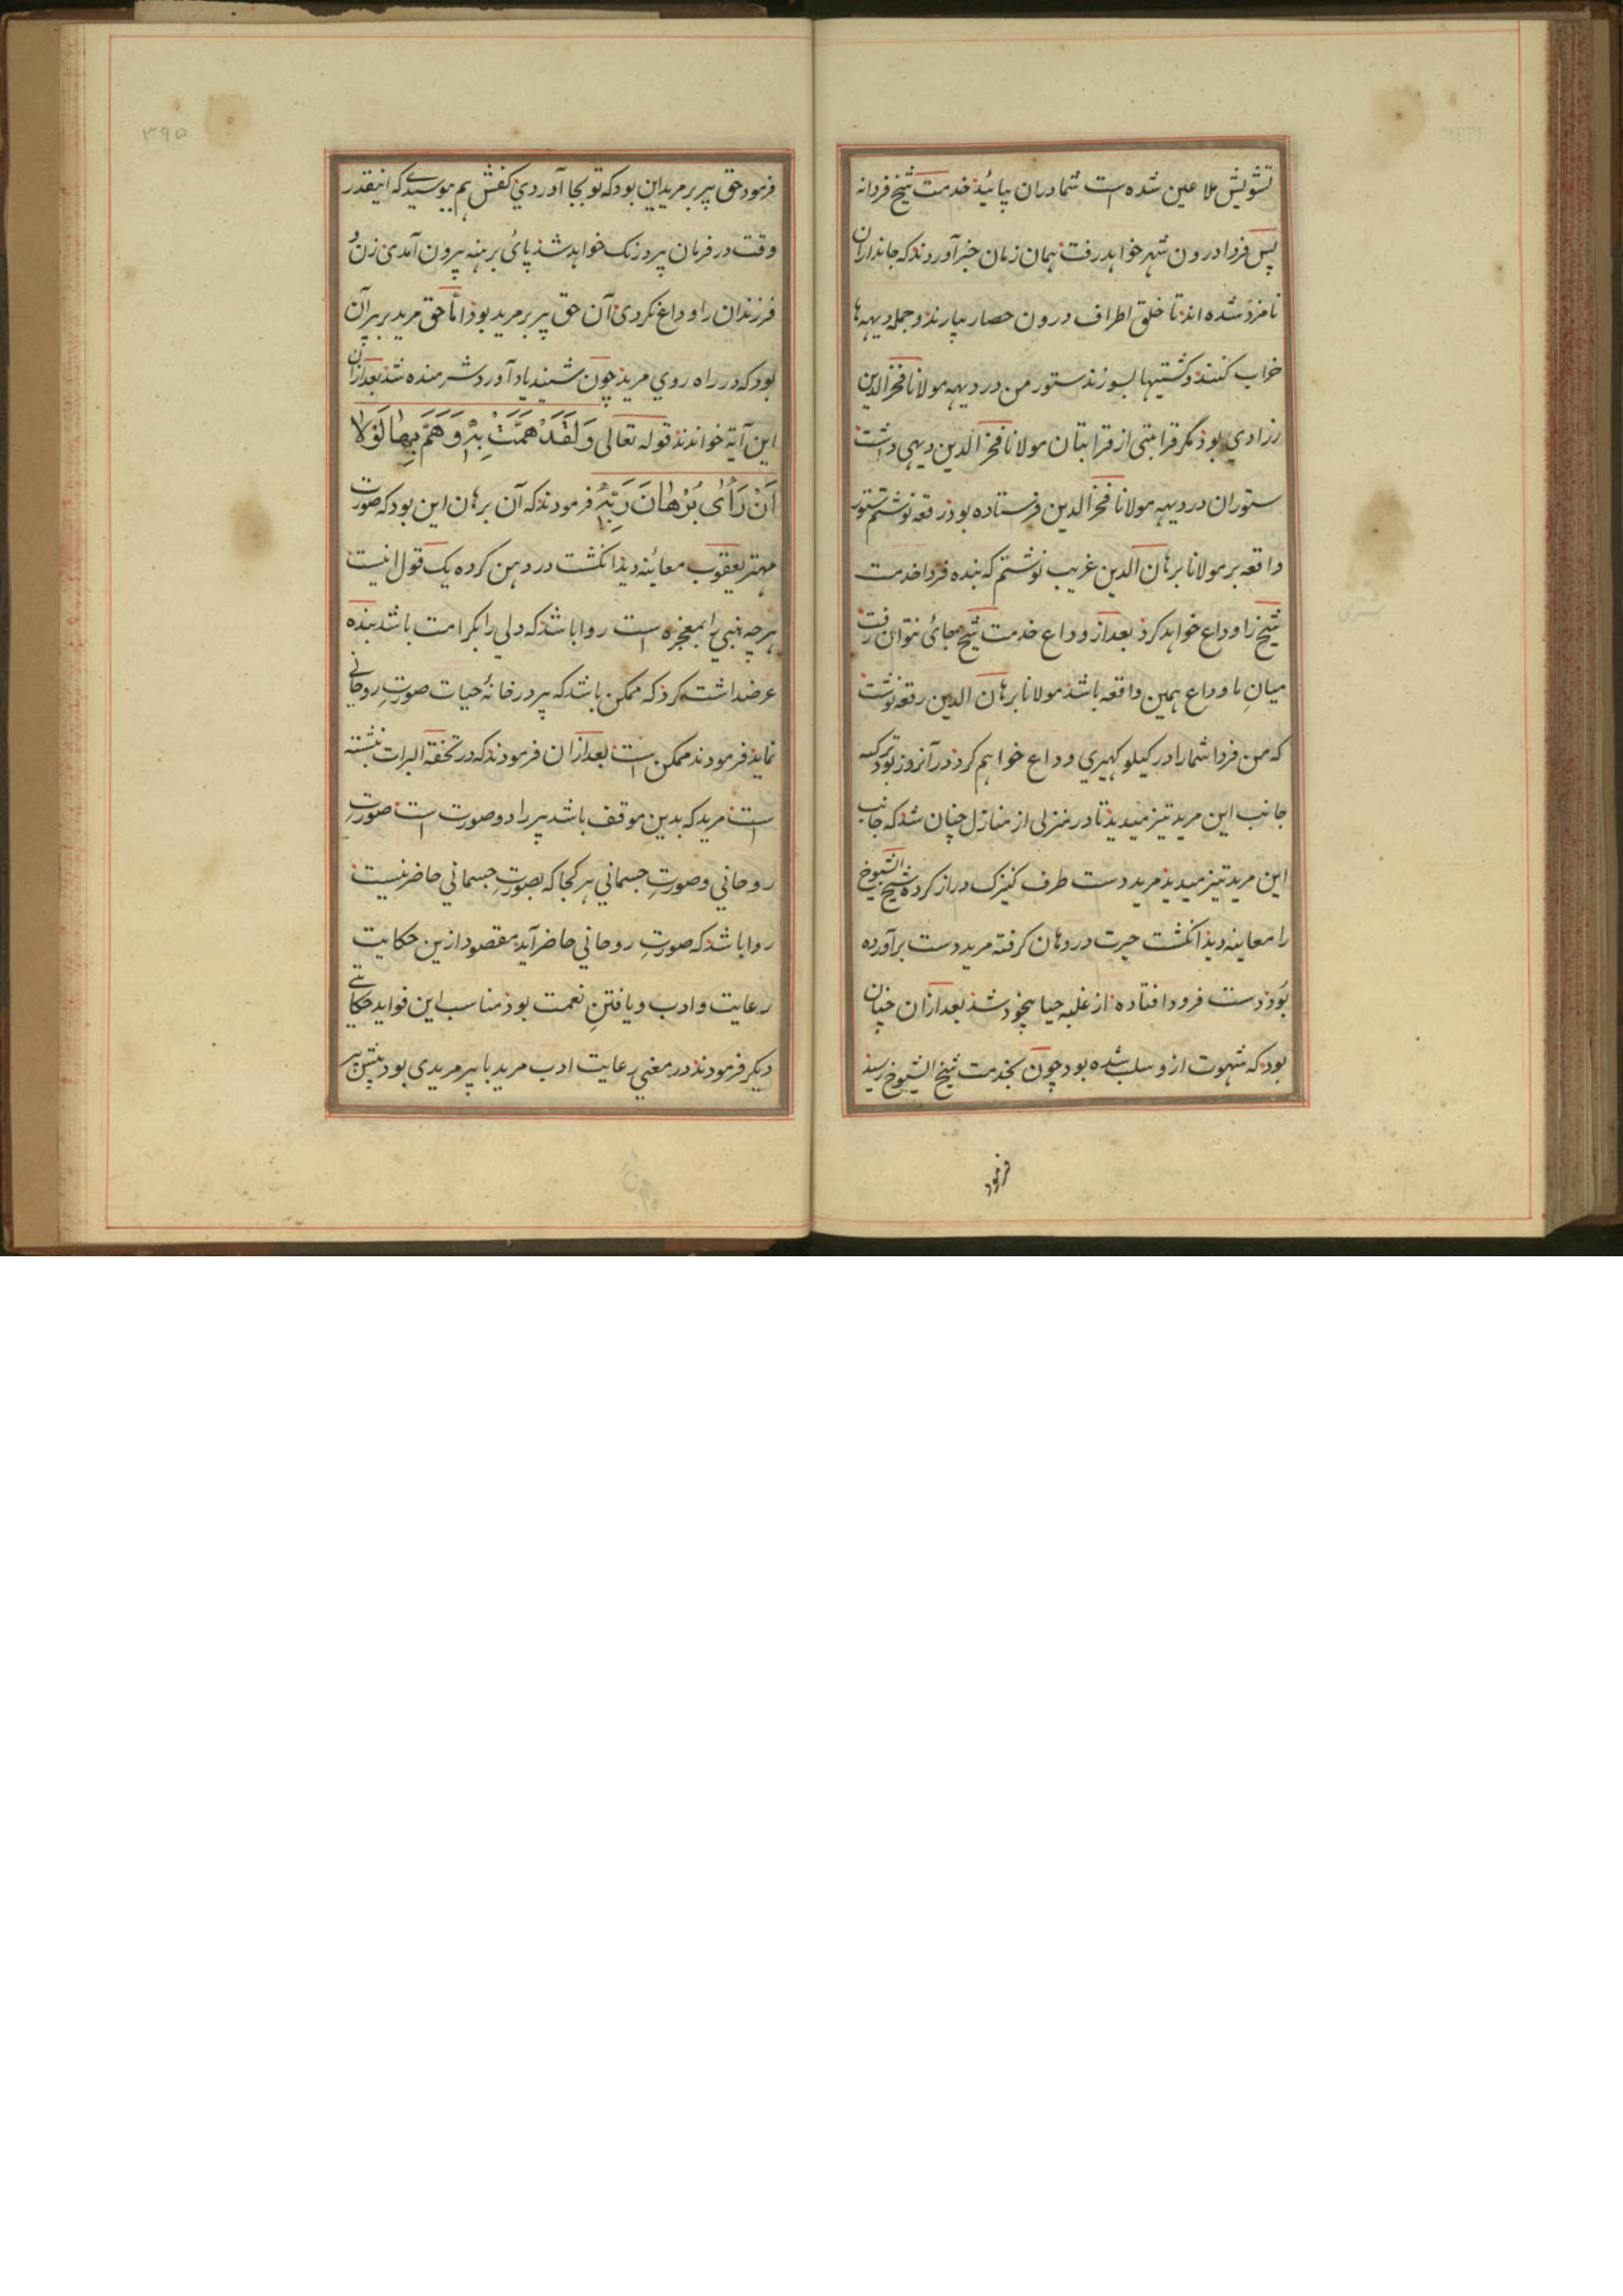 تشویش ملاعین شده است شما دران پائید خدمت شیخ فردا نه
پس فردا درون شهر خواهد رفت همان زمان خبر آوردند که جانداران
نامزد شده اند تا خلق اطراف درون حصار بیارند و جمله دیهه ها
خراب کنند و کشتیها بسوزند ستور من در دیهه مولانا فخر الدین
رزادی بود مگر قرابتی از قرابتان مولانا فخر الدین دیهی داشت
ستوران در دیهه مولانا فخر الدین فرستاده بود رقعه نوشتم ستور
واقعه بر مولانا برهان الدین غریب نوشتم که بنده فردا خدمت
شیخ را وداع خواهد کرد بعد از وداع خدمت شیخ بجائ نتوان رفت
میان ما وداع همین واقعه باشد مولانا برهان الدین رقعه نوشت
که من فردا شما را در کیلو کهیری وداع خواهم کرد در آنروز بود ترکیه
جانب این مرید تیز میدید تا در منزلی از منازل چنان شد که جانب
این مرید تیز میدید مرید دست طرف کنیزک دراز کرده شیخ الشیوخ
را معاینه دید انگشت حیرت در دهان گرفته مرید دست برآورده
بود دست فرود افتاده از غلبه حیا بیخود شد بعد ازان چنان
بود که شهوت ازو سلب شده بود چون بخدمت شیخ الشیوخ رسید
فرمود
۳۹۵
فرمود حق پیر بر مرید این بود که تو بجا آوردی کفش هم بپوسیدی که اینقدر
وقت در فرمان پیر درنگ خواهد شد پائ برهنه بیرون آمدی زن و
فرزندان را وداع نکردی آن حق پیر بر مرید بود اما حق مرید بر پیر آن
بود که در راه روی مرید چون شنید یاد آورد شرمنده شد بعد ازان
این آیة خواندند قوله تعالی وَلَقَدْ هَمَّتْ بِهٖ وَهَمَّ بِهَا لَوْلَا
اَنْ رَأٰی بُرْهَانَ رَبِّهٖ فرمودند که آن برهان این بود که صورت
مهتر یعقوب معاینه دید انگشت در دهن کرده یک قول اینست
هرچه نبی را بمعجزه است روا باشد که ولی را بکرامت باشد بنده
عرضداشت کرد که ممکن باشد که پیر در خانهٔ حیات صورتِ روحانی
نماید فرمودند ممکن است بعد ازان فرمودند که در تحفة البرات نبشته
است مرید که بدین موقف باشد پیر را دو صورت است صورتِ
روحانی و صورتِ جسمانی هر کجا که بصورتِ جسمانی حاضر نیست
روا باشد که صورتِ روحانی حاضر آید مقصود ازین حکایت
رعایت و ادب و یافتنِ نعمت بود مناسب این فواید حکایتے
دیگر فرمودند در معنی رعایت ادب مرید با پیر مریدی بود پیش پیر